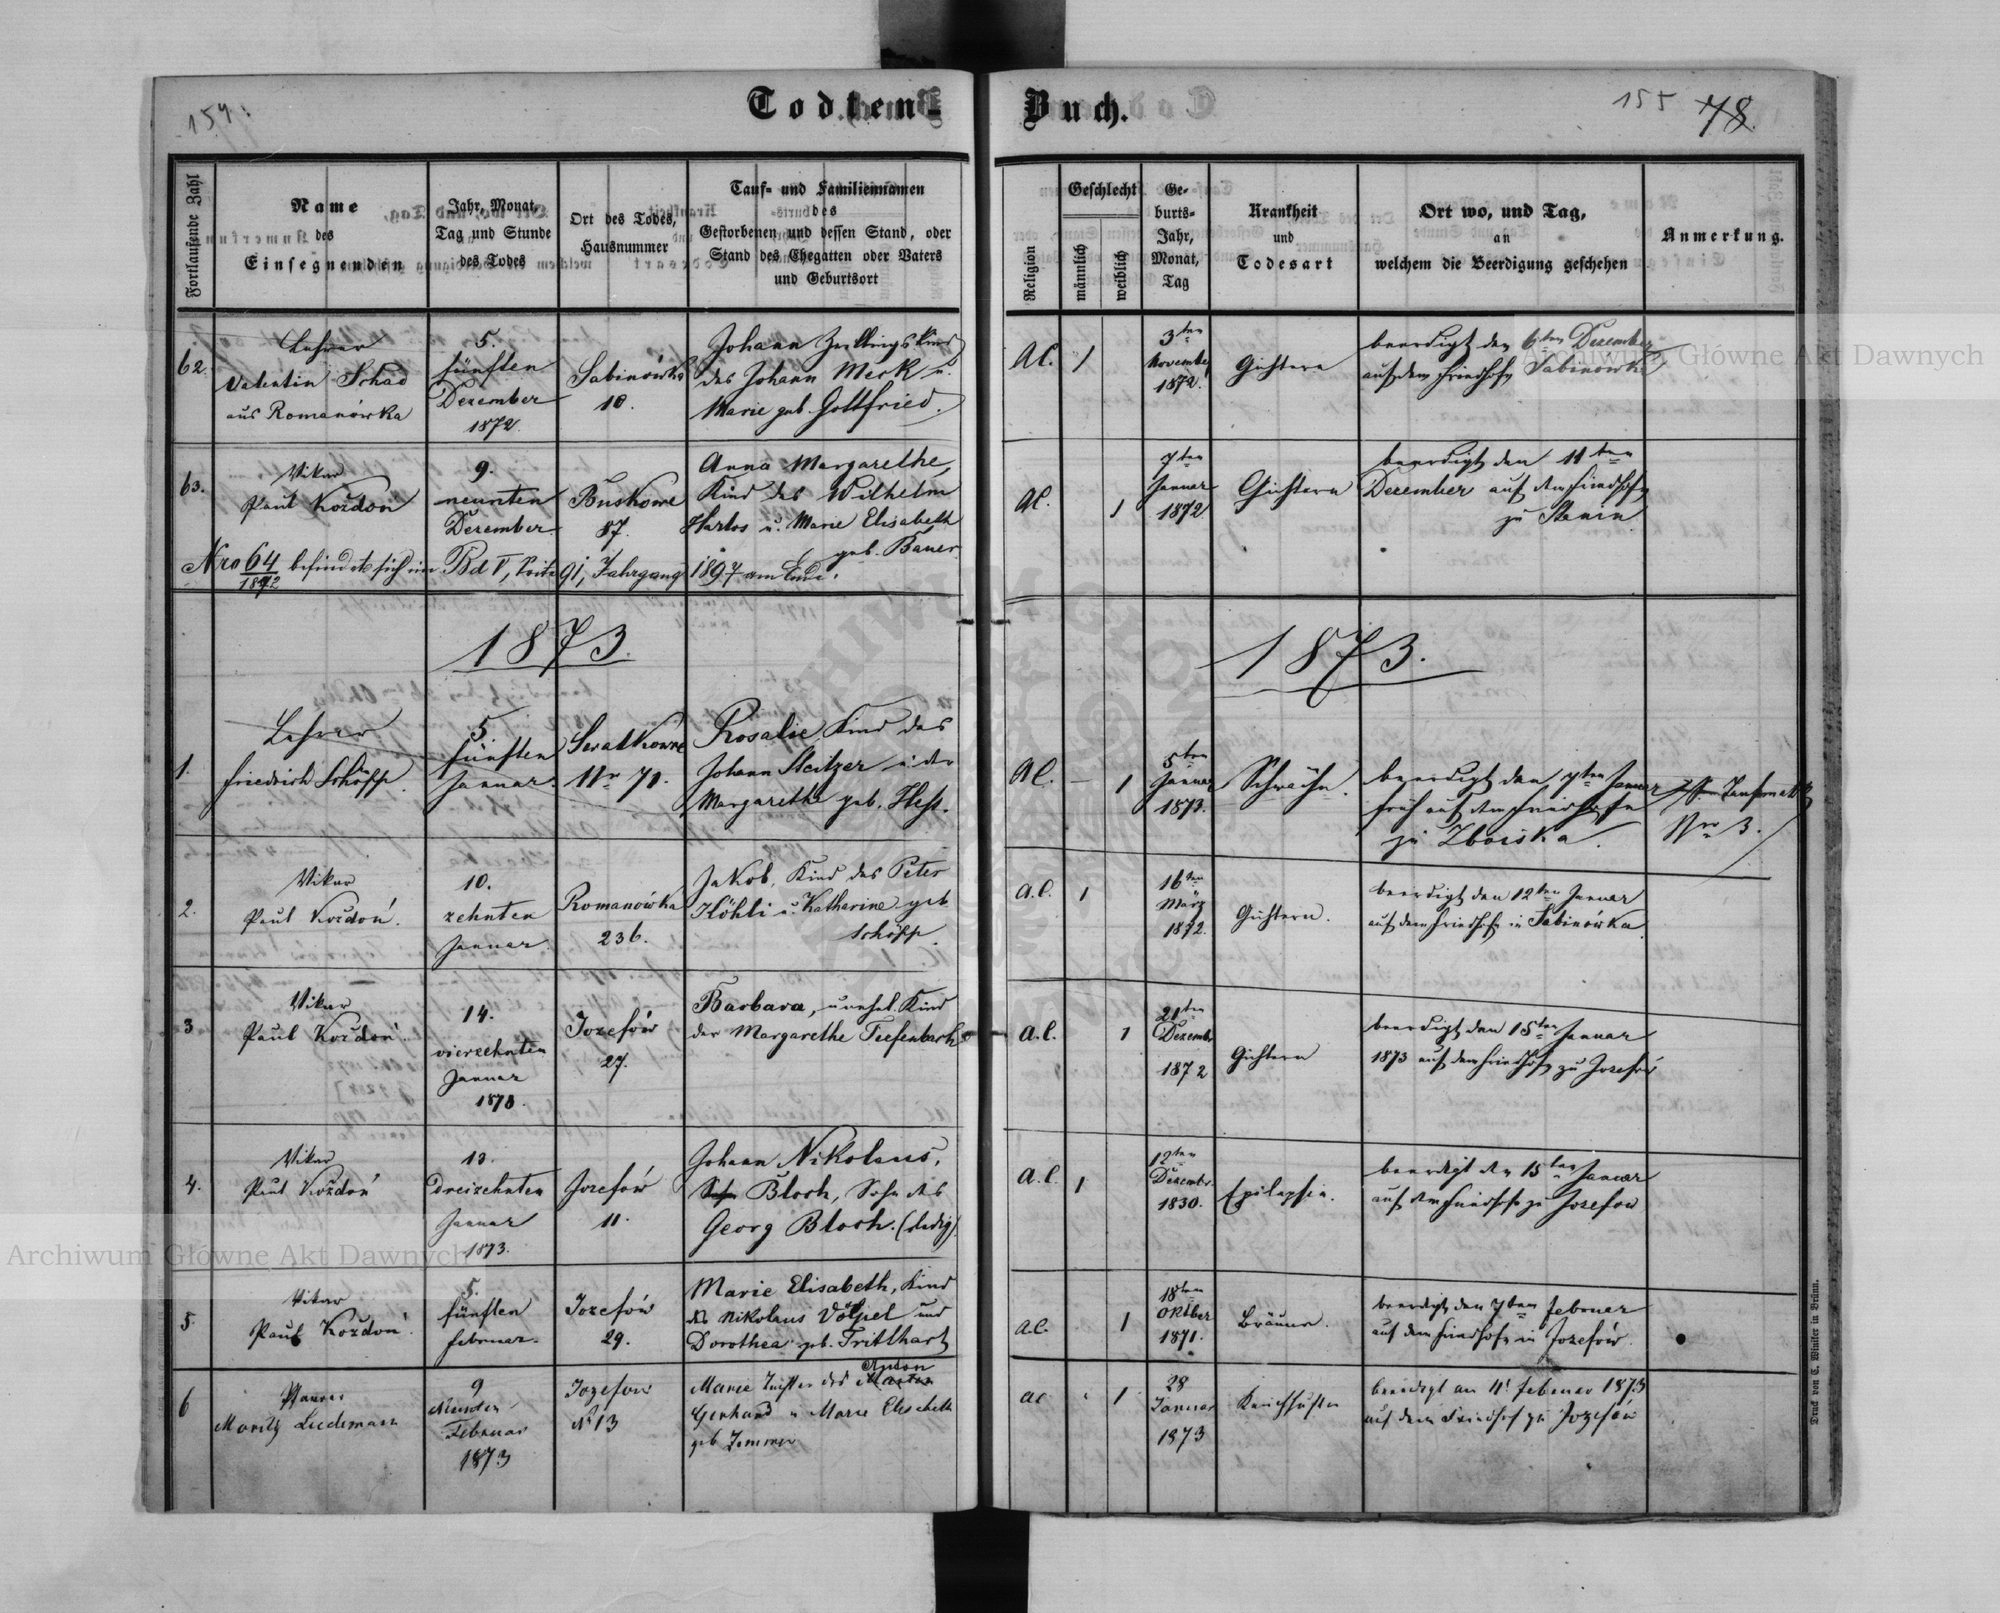 154.
Todten-
Buch.
155 78.
Fortlaufende Zahl
Name
des
Einsegnenden
Jahr, Monat,
Tag und Stunde
des Todes
Ort des Todes,
Hausnummer
Tauf- und Familiennamen
des
Gestorbenen und dessen Stand, oder
Stand des Ehegatten oder Vaters
und Geburtsort
Religion
Geschlecht
männlich
weiblich
Ge-
burts-
Jahr,
Monat,
Tag
Krankheit
und
Todesart
Ort wo, und Tag,
an
welchem die Beerdigung geschehen
Anmerkung.
62.
Lehrer
Valentin Schad
aus Romanówka
5.
fünften
Dezember
1872.
Sabinówka
10.
Johann Zwillingskind
des Johann Merk u.
Marie geb. Gottfried.
AC. 1
3ten
November
1872.
Gichtern
beerdigt den 6ten Dezember
auf dem Friedhofe Sabinówka
63.
Vikar
Paul Kozdoń
9.
neunten
Dezember
Buskowe
87.
Anna Margarethe,
Kind des Wilhelm
Harlos u. Marie Elisabeth
geb. Bauer.
AC. 1
7ten
Januar
1872.
Gichtern
beerdigt den 11ten
Dezember auf dem Friedhofe
zu Stenin
Nro 64/1872 befindet sich im Bd V, Seite 91, Jahrgang 1897 am Ende.
1873.
1873.
1.
Lehrer
Friedrich Schöpp.
5.
fünften
Januar.
Seratkowce
Nr 71.
Rosalie, Kind des
Johann Steitzer u. der
Margarethe geb. Hess.
AC. — 1
5ten
Januar
1873.
Schwäche.
beerdigt den 7ten Januar
früh auf dem Friedhofe
zu Zboiska.
Taufmatrik
Nro 3.
2.
Vikar
Paul Kozdoń.
10.
zehnten
Januar.
Romanówka
236.
Jakob, Kind des Peter
Höhli u. Katharine geb.
Schöpp.
a.C. 1
16ten
März
1872.
Gichtern.
beerdigt den 12ten Januar
auf dem Friedhofe in Sabinówka.
3
Vikar
Paul Kozdoń.
14.
vierzehnten
Januar
1873.
Jozefów
27.
Barbara, unehel. Kind
der Margarethe Tiefenbach.
a.C. 1
21ten
Dezemb.
1872
Gichtern
beerdigt den 15ten Januar
1873 auf dem Friedhofe zu Jozefów
4.
Vikar
Paul Kozdoń
13.
Dreizehnten
Januar
1873.
Jozefów
11.
Johann Nikolaus,
Sohn Bloch, Sohn des
Georg Bloch. (ledig).
a.C. 1
12ten
Dezembr.
1830.
Epilepsie.
beerdigt den 15ten Januar
auf dem Friedhofe zu Josefow
5.
Vikar
Paul Kozdoń.
5.
fünften
Februar.
Jozefów
29.
Marie Elisabeth, Kind
des Nikolaus Völpel und
Dorothea geb. Fritthart
a.C. 1
18ten
Oktber
1871.
Bräune.
beerdigt den 7ten Februar
auf dem Friedhofe in Jozefów.
6
Pfarrer
Moritz Liedemann
9
Neunten
Februar
1873
Jozefow
No 13
Anton
Marie Tochter des Martin
Gerhard u Marie Elisabeth
geb Zimmer
ac 1
28
Januar
1873
Keuchhusten
beerdigt am 11. Februar 1873
auf dem Friedhof zu Jozefów
Druck von C. Winiker in Brünn.
Archiwum Główne Akt Dawnych
Archiwum Główne Akt Dawnych